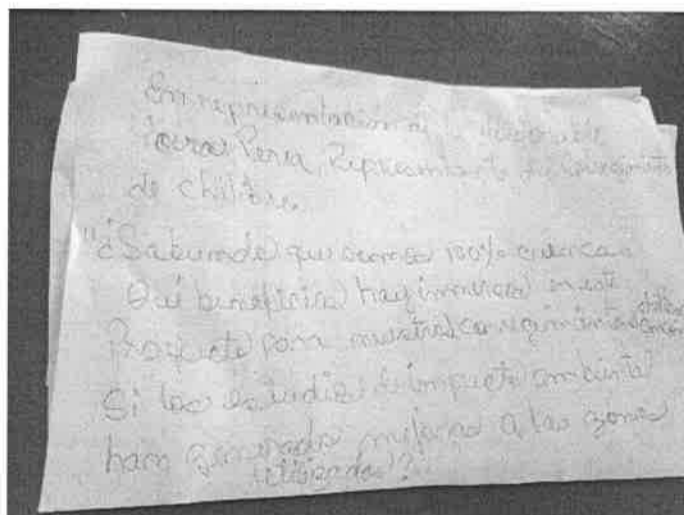 En representación de
Perea, Representante del Corregimiento
de Chilibre.
"¿Sabiendo que somos 100% cuenca
Qué beneficios hay inmerso en este
Proyecto para nuestros corregimientos
Si los estudios de impacto ambiental
han generado mejoras a las zonas
?